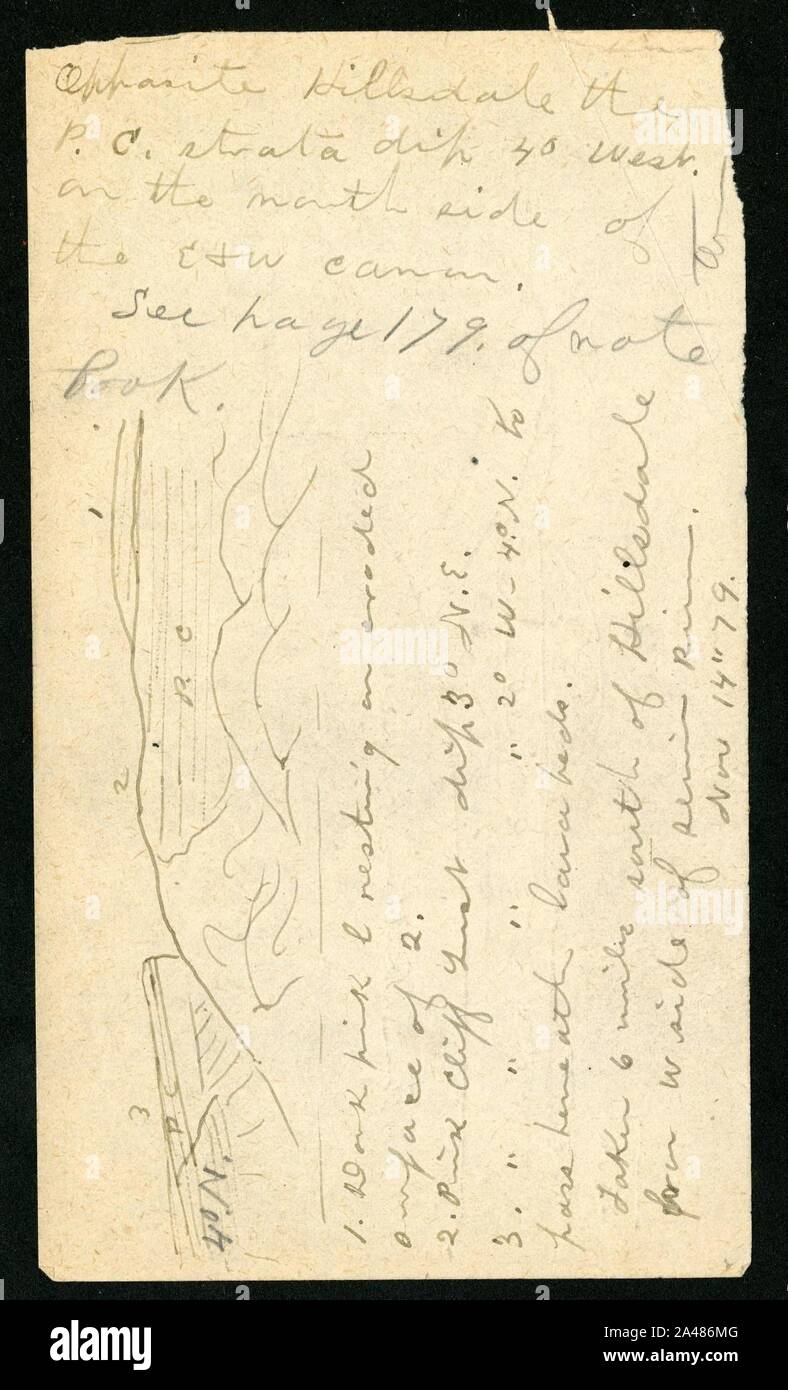 Opposite Hillsdale the
P. C. strata dip 4° West.
on the north side of
the E & W canon.
See page 179. of note
book.
1
2
3
P. C
P C
4° N.
1. Dark pink l resting on eroded
surface of 2.
2. Pink Cliff just dip 3° N.E.
3. " " " " 2° W - 4° N. to
pass beneath lava beds.
Taken 6 miles south of Hillsdale
from W side of sevier River.
Nov 14" 79.
alamy
Image ID: 2A486MG
www.alamy.com